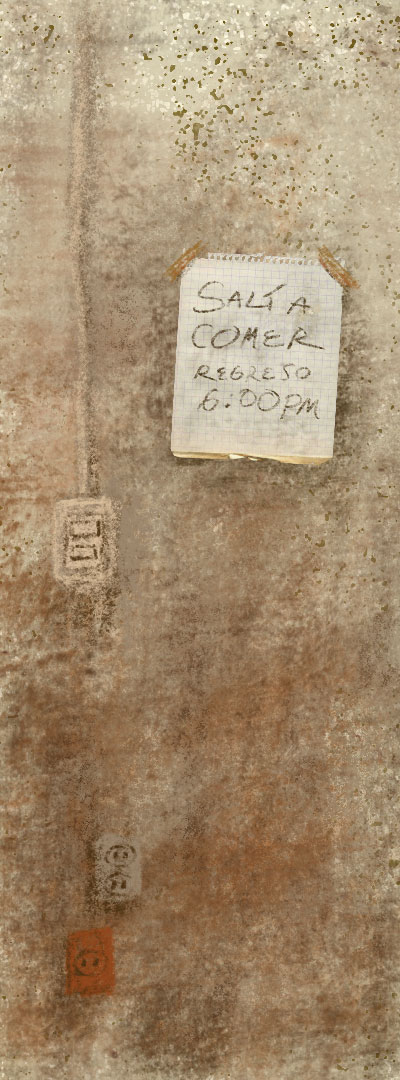 SALÍ A
COMER
REGRESO
6:00PM